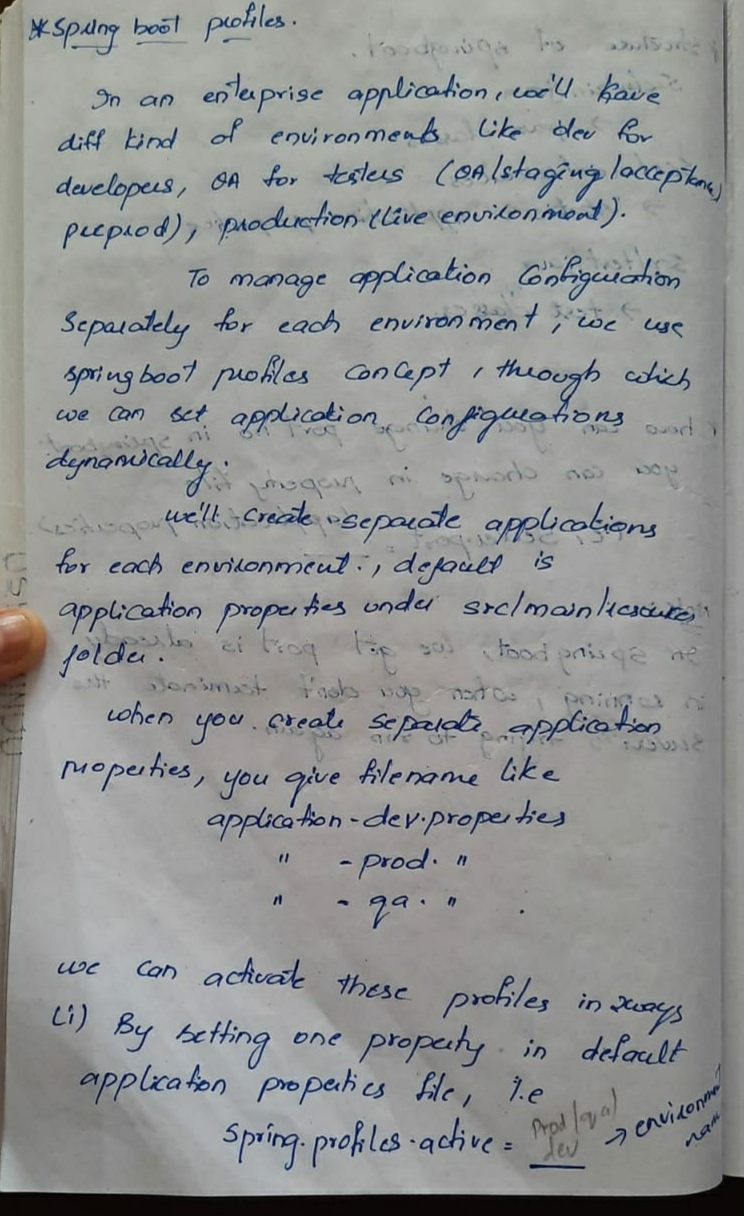 * Spring boot profiles.
In an enterprise application, we'll have
diff kind of environments like dev for
developers, QA for testers (QA/staging/acceptance/
preprod), production (live environment).
To manage application Configuration
Separately for each environment, we use
springboot profiles concept, through which
we can set application configurations
dynamically.
we'll create separate applications
for each environment., default is
application properties under src/main/resources
folder.
when you create separate application
properties, you give filename like
application-dev.properties
" - prod. "
" - qa. "
we can activate these profiles in 2ways
(i) By setting one property in default
application properties file, i.e
Spring.profiles.active = Prod/qa/ → environment
dev name